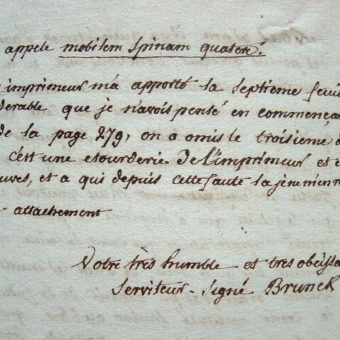 appele mobilem spinam quatere.
imprimeur m'a apporté la septieme feui
derable que je n'avois pensé en commença
de la page 279, on a omis le troisieme
C'est une etourderie de l'imprimeur et
uves, et a qui depuis cette faute la
attachement
Votre très humble et tres obéissa
Serviteur. Signé Brunck